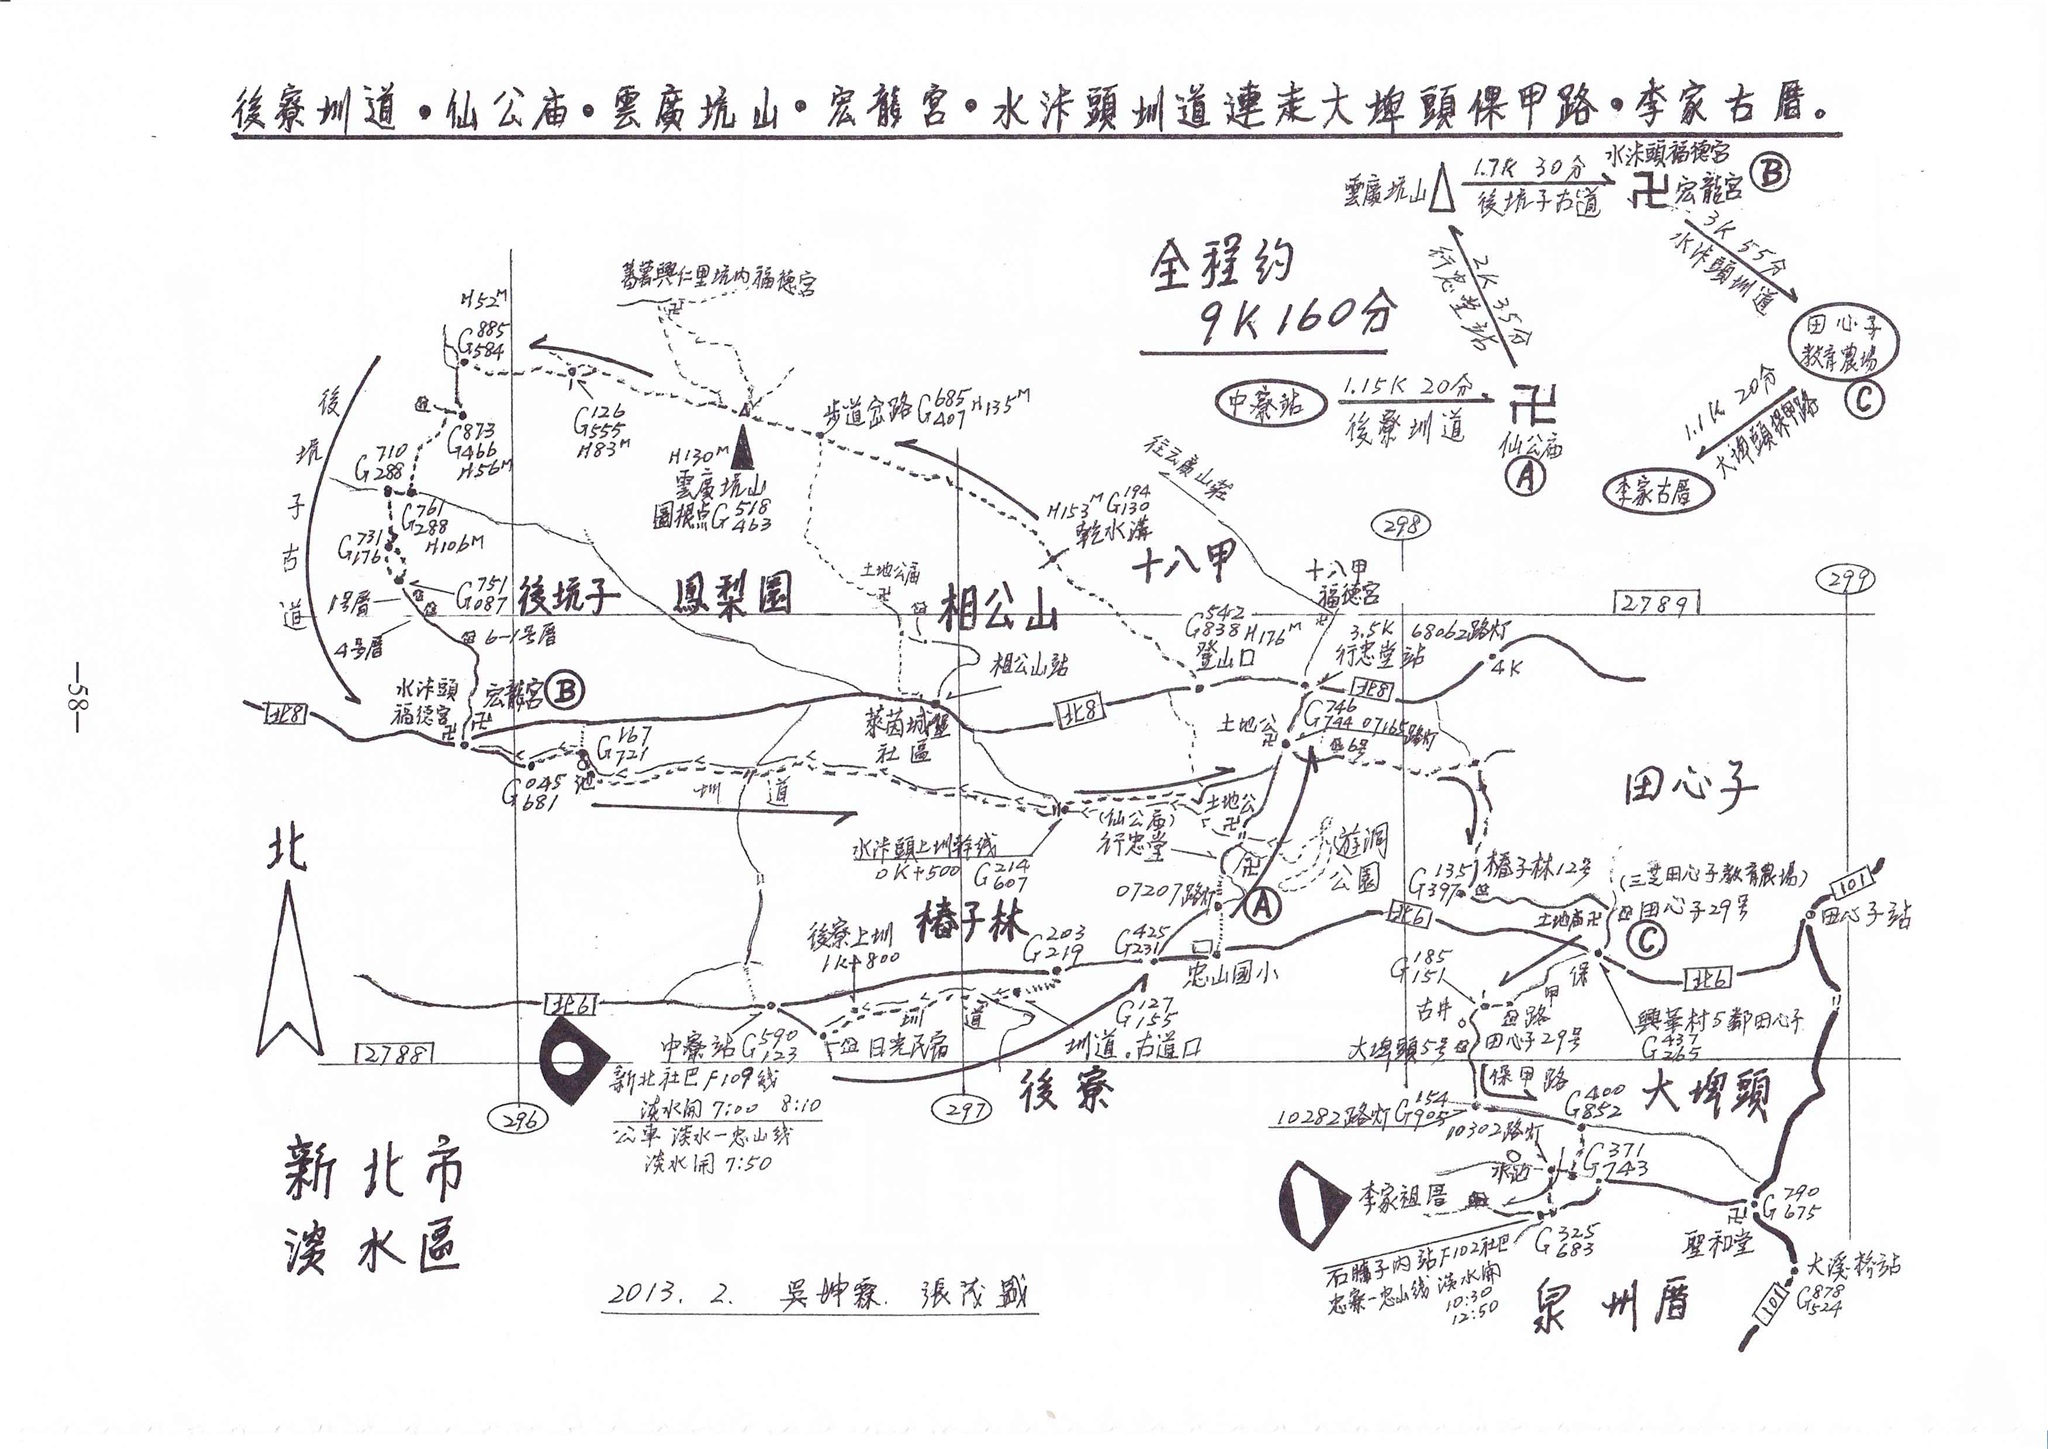 後寮圳道・仙公庙・雲廣坑山・宏龍宮・水汴頭圳道連走大埤頭保甲路・李家古厝。
雲廣坑山
1.7K 30分
後坑子古道
水汴頭福德宮
宏龍宮
B
3K 55分
水汴頭圳道
2K 35分
行忠堂站
全程約
9K 160分
中寮站
1.15K 20分
後寮圳道
仙公庙
A
田心子
教育農場
C
1.1K 20分
大埤頭保甲路
李家古厝
蕃薯興仁里坑內福德宮
H52M
G885
584
G126
555
H83M
步道岔路 G685
407 H135M
G873
466
H56M
G710
288
G761
288
H106M
G731
176
G751
087
後坑子古道
H130M
雲廣坑山
圖根点 G518
463
往云廣山莊
H153M G194
130
乾水溝
十八甲
298
299
2789
1号厝
4号厝
6-1号厝
後坑子
鳳梨園
土地公庙
相公山
相公山站
G542
838 H176M
登山口
十八甲
福德宮
3.5K 68062路灯
行忠堂站
4K
北8
水汴頭
福德宮
宏龍宮
B
北8
北8
萊茵城堡
社區
G746
744 07165路灯
土地公
6号
G167
721
池
G045
681
圳道
田心子
土地公
(仙公庙)
行忠堂
遊洞
公園
水汴頭上圳幹线
0K+500 G214
607
07207路灯
A
G135
397
椿子林12号
(三芝田心子教育農場)
田心子29号
土地庙
C
101
田心子站
北
椿子林
後寮上圳
1K+800
G203
219
G425
231
忠山國小
北6
北6
北6
G185
151
古井
保甲路
田心子29号
大埤頭5号
興華村5鄰田心子
G437
265
2788
中寮站 G590
123
日光民宿
圳道
G127
155
圳道.古道口
新北社巴F109线
淡水開 7:00 8:10
公車 淡水-忠山线
淡水開 7:50
296
297
後寮
保甲路
大埤頭
10282路灯 G154
905
G400
852
10302路灯
水塔
G371
743
李家祖厝
G325
683
G290
675
聖和堂
大溪橋站
G878
524
101
石牆子內站F102社巴
忠寮-忠山线 淡水開
10:30
12:50
泉州厝
新北市
淡水區
2013. 2. 吳坤霖. 張茂盛
-58-